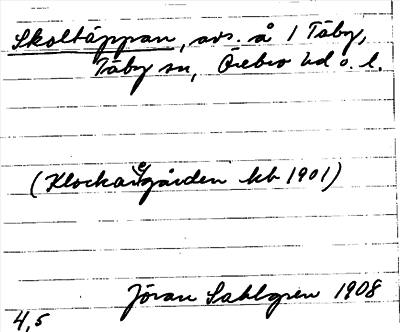 Skoltäppan, avs. å 1 Täby,
Täby sn, Örebro hd o. l.
(Klockaregården kb 1901)
Jöran Sahlgren 1908
4,5